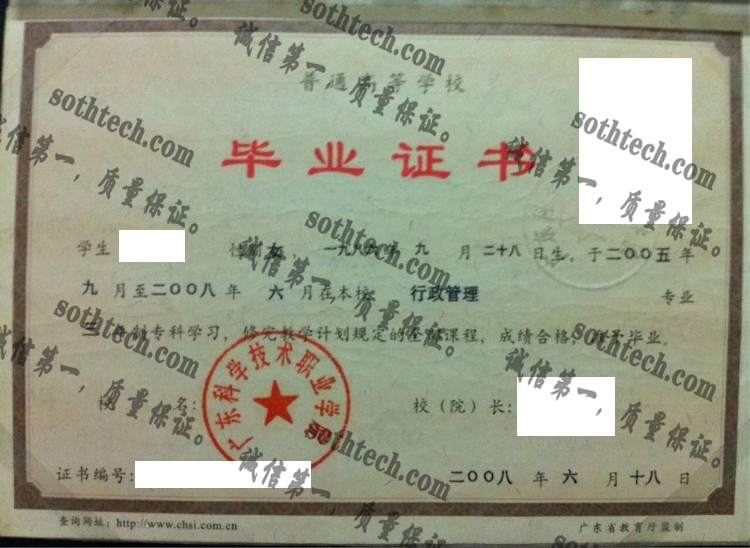 普通高等学校
毕业证书
学生 性别女，一九八六年 九 月 二十八 日生，于二〇〇五年
九 月至二〇〇八年 六 月在本校 行政管理 专业
三年制专科学习，修完教学计划规定的全部课程，成绩合格，准予毕业。
校 名： 校（院）长：
广东科学技术职业学院
证书编号： 二〇〇八 年 六 月 十八 日
查询网址：http://www.chsi.com.cn 广东省教育厅监制
sothtech.com
诚信第一，质量保证。
sothtech.com
诚信第一，质量保证。
sothtech.com
诚信第一，质量保证。
sothtech.com
诚信第一，质量保证。
sothtech.com
诚信第一，质量保证。
sothtech.com
诚信第一，质量保证。
sothtech.com
诚信第一，质量保证。